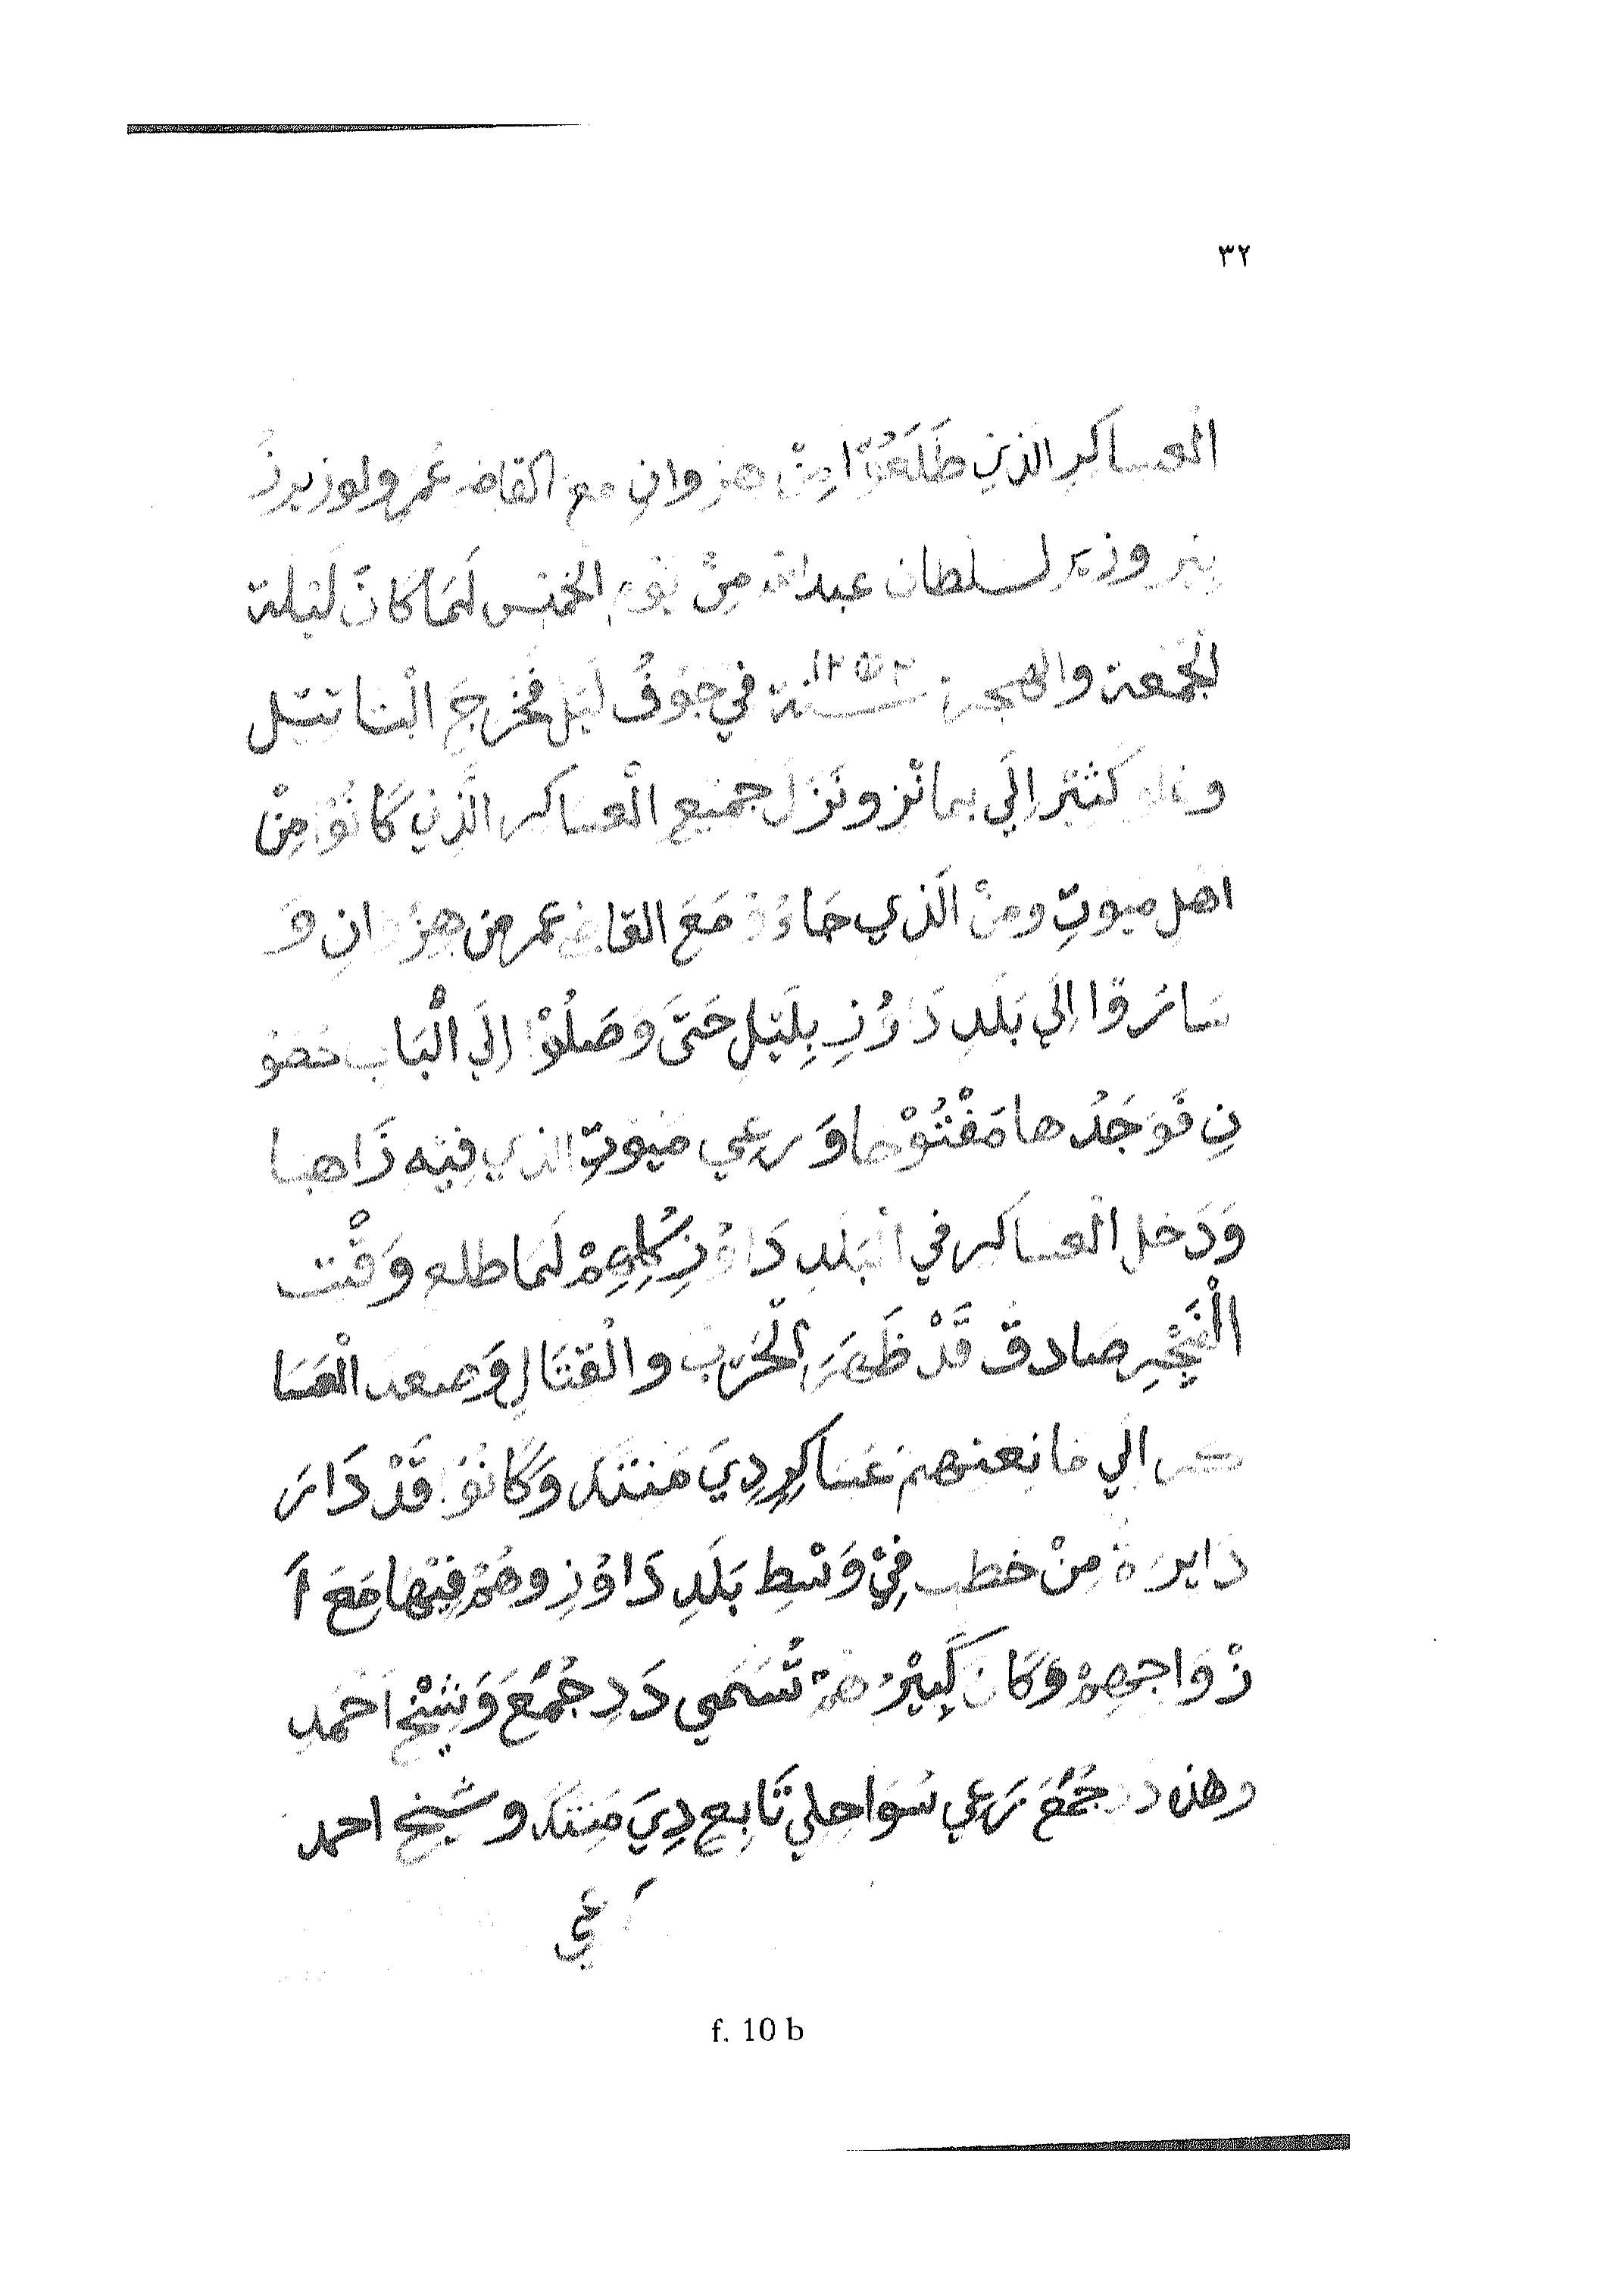 ٣٢
العساكر الذين طَلَعُوْا مِنْ هنزوان مع القاضي عُمَر ولوزيرذ
ينير وزير لسلطان عبدالله مِنْ يَوْمِ الخميس لَمَا كَانَ لَيْلة
الجُمعة والهجرة سنة ١٢٥٢ في جَوْفُ لَيْل فخَرجَ البنا تتيل
و كَثيْر اِلَي بمانْز ونَزَلَ جميع الْعساكر الَّذِيْ كَانُوْا مِنْ
اهل ميوتِ ومنْ الَذي جَاءُوْ مَعَ القاضي عمر من هِنْزوانِ وَ
سَارُوْا اِلَي بَلَدِ دَاوُزِ بِلَيْلِ حَتَّى وَصَلُوْا اِلَي الْبَاب
نِ فَوَجَدُها مَفْتُوْحا وَرعِي مَيوتِ الذي فِيْه ذَاهبا
وَدَخل الْعساكر في الْبَلَدِ دَاوُزِ كُلِهِمْ لَمَا طلع وَقْت
الْفَجْرِ صَادق قَدْ ظَهَرَ الْحَرْب والْقِتَالِ وَصعد الْعَسَا
كر الَي مانعنهم عَسَاكِرِ دِيَ مَنتَكَ وَكَانُوْا قَدْ دَارَ
دَايرَة مِنْ خطب فِيْ وَسْطِ بَلَدِ دَاوُزِ وهُمْ فِيْها مَعَ اَ
زْوَاجِهِمْ وَكَانَ كَبِيْرُ هُمْ تُسَمَي دَدِ جُمُعَ وَشِيْخ اَحْمَدِ
وهذ دد جُمُعَ رَعِي سَوَاحِلي تَابِع دِيَ مَنتَكَ وشَيخ احمد
f. 10 b